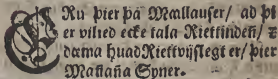 ERu þier þa Mællauser/ ad þi
er vilied ecke tala Riettinden/ z
dæma huad Riettvijslegt er/ þier
Mañaña Syner.